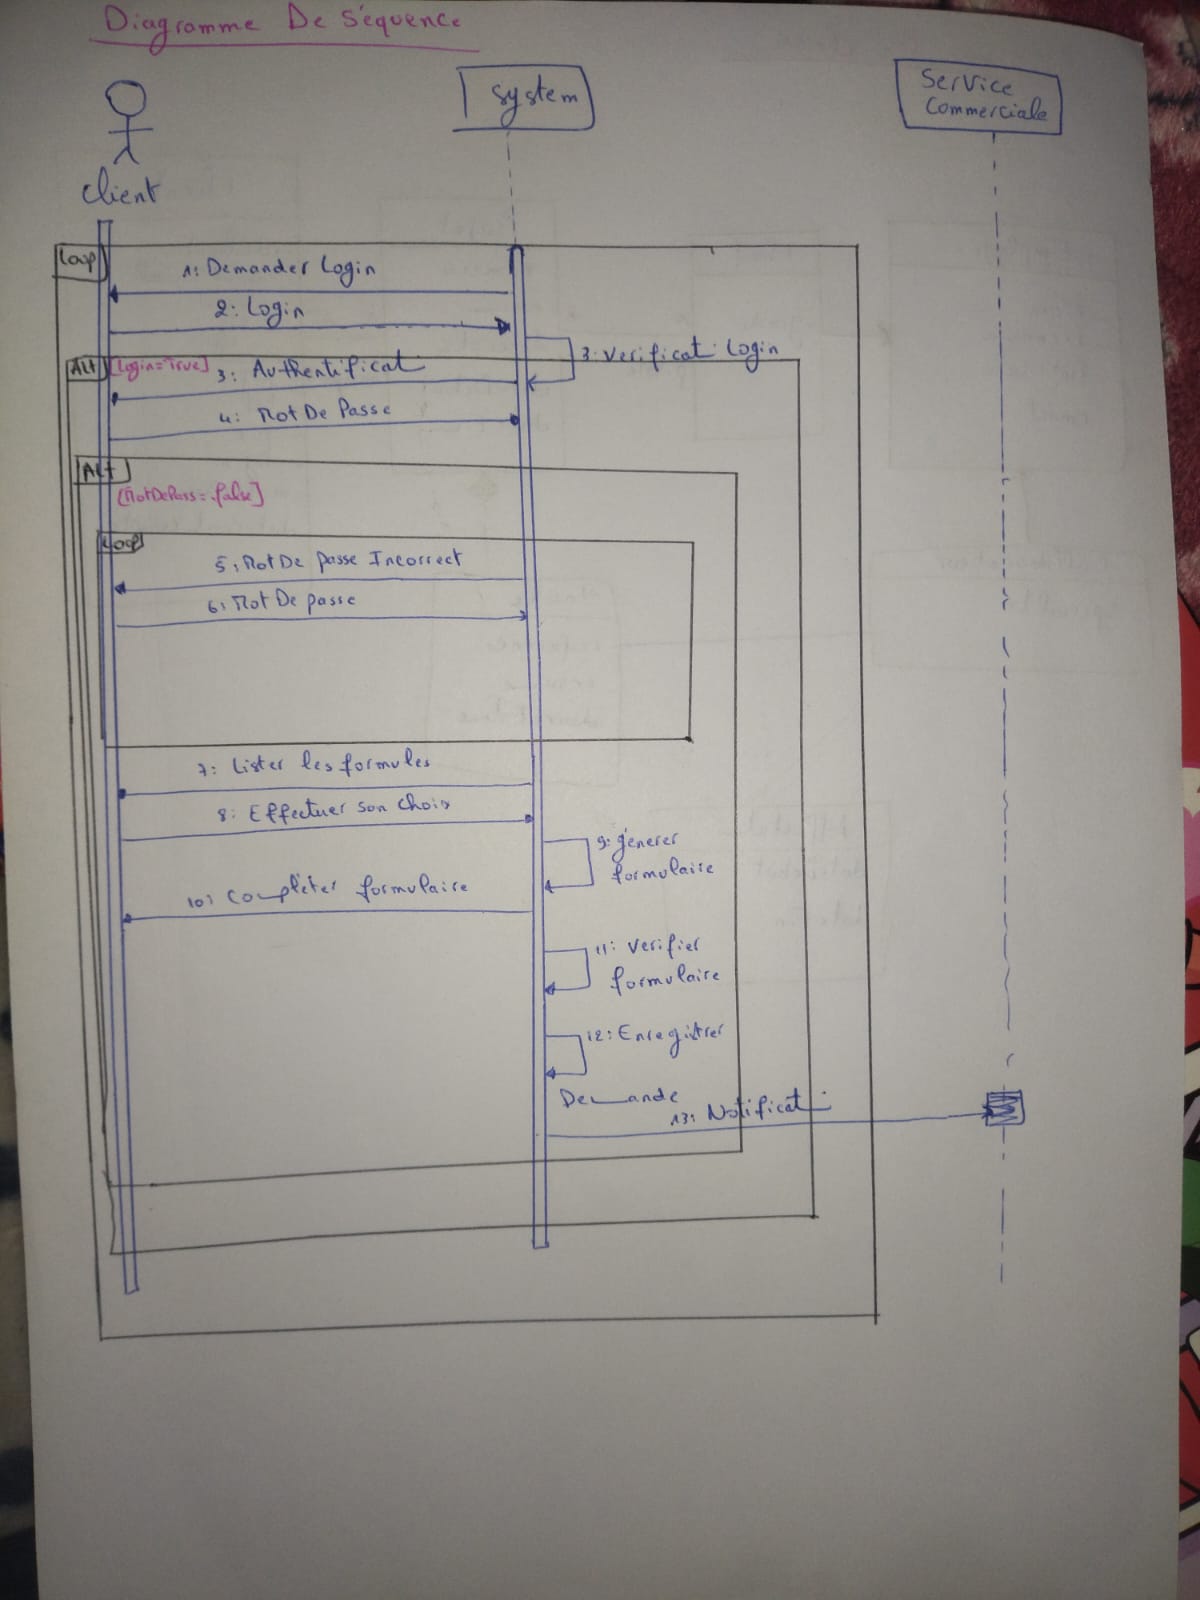 Diagramme De Séquence
System
Service
Commerciale
Client
Loop
1: Demander Login
2: Login
3: Verificat° Login
Alt
[Login=True]
3: Authentificat°
4: Mot De Passe
Alt
[MotDePass=false]
Loop
5: Mot De passe Incorrect
6: Mot De passe
7: Lister les formules
8: Effectuer son choix
9: générer
formulaire
10: Compléter formulaire
11: Verifier
formulaire
12: Enregistrer
Demande
13: Notificat°